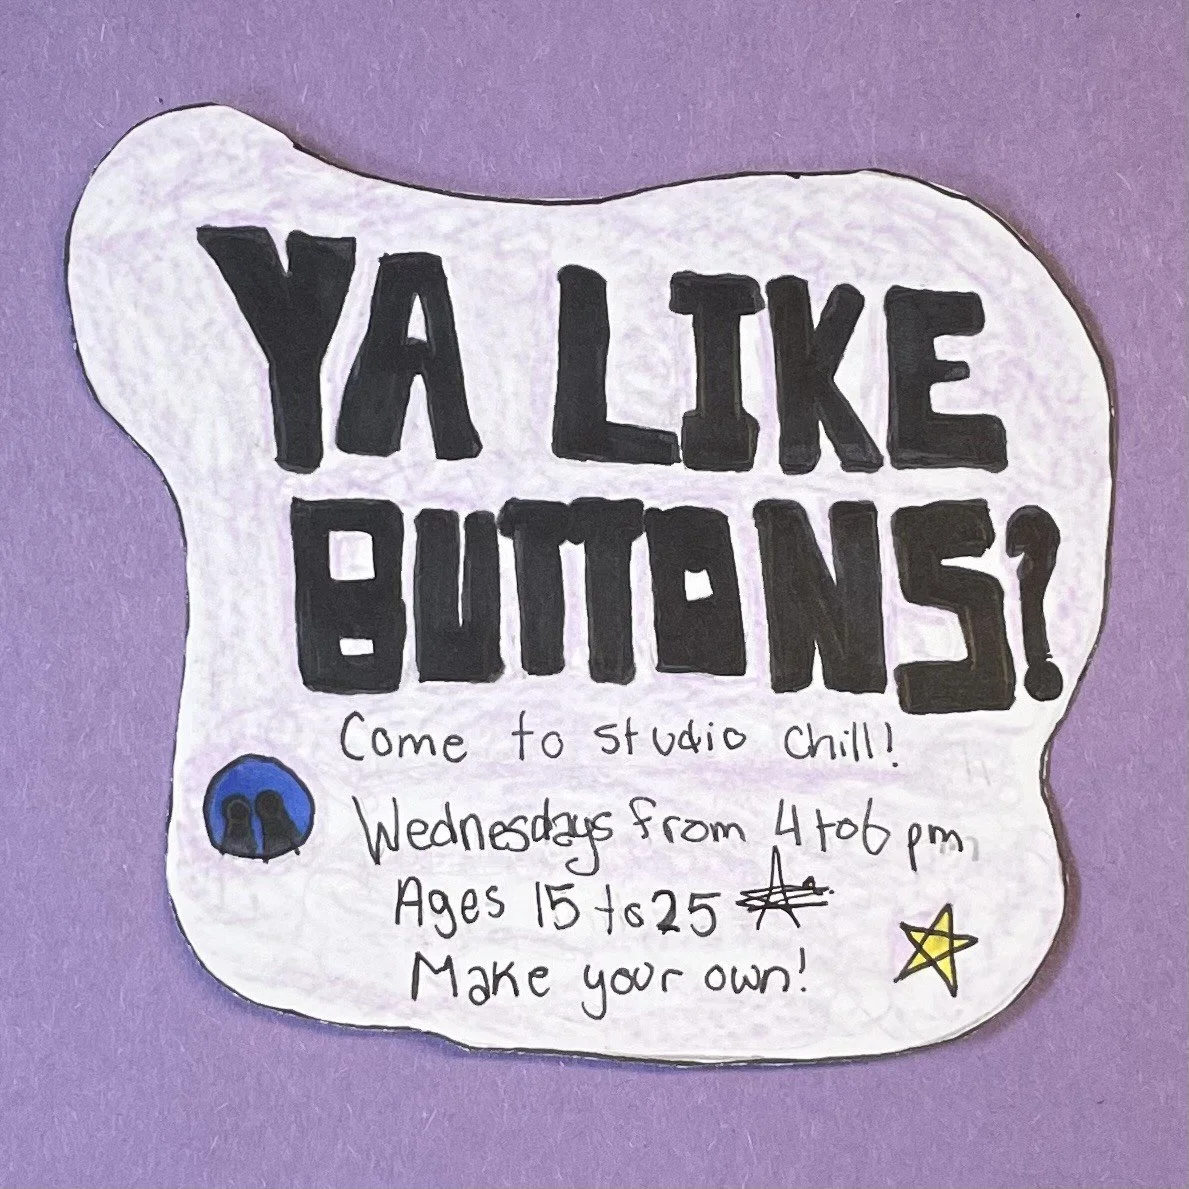 YA LIKE
BUTTONS?
Come to studio chill!
Wednesdays from 4 to 6 pm,
Ages 15 to 25
Make your own!